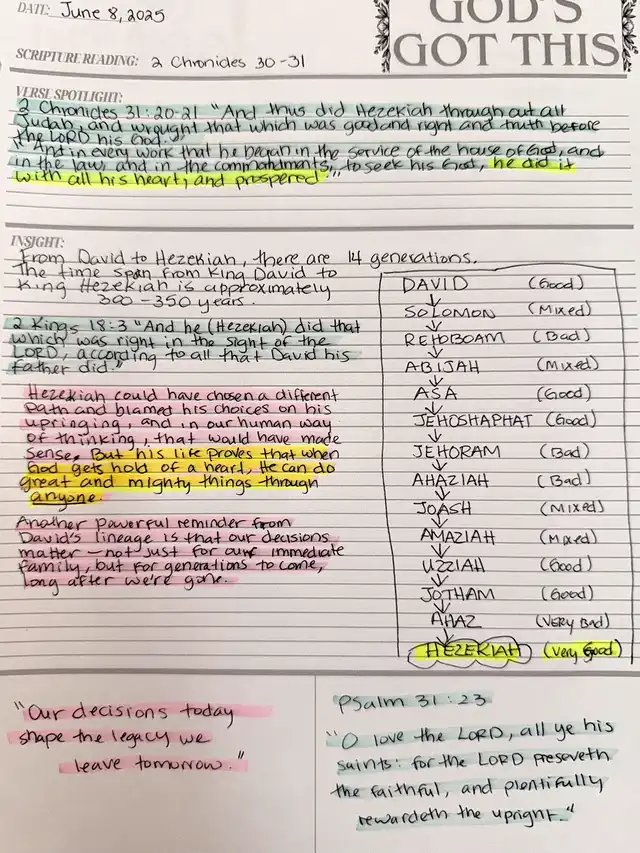 DATE: June 8, 2025
GOD'S
GOT THIS
SCRIPTURE READING: 2 Chronicles 30-31
VERSE SPOTLIGHT:
2 Chronicles 31:20-21 "And thus did Hezekiah through out all
Judah, and wrought that which was good and right and truth before
the LORD his God.
"And in every work that he began in the service of the house of God, and
in the law, and in the commandments, to seek his God, he did it
with all his heart, and prospered."
INSIGHT:
From David to Hezekiah, there are 14 generations.
The time span from King David to
King Hezekiah is approximately
300-350 years.
2 Kings 18:3 "And he (Hezekiah) did that
which was right in the sight of the
LORD, according to all that David his
father did."
Hezekiah could have chosen a different
path and blamed his choices on his
upringing, and in our human way
of thinking, that would have made
sense. But his life proves that when
God gets hold of a heart, He can do
great and mighty things through
anyone.
Another powerful reminder from
David's lineage is that our decisions
matter - not just for our immediate
family, but for generations to come,
long after we're gone.
DAVID (Good)
↓
SOLOMON (Mixed)
↓
REHOBOAM (Bad)
↓
ABIJAH (Mixed)
↓
ASA (Good)
↓
JEHOSHAPHAT (Good)
↓
JEHORAM (Bad)
↓
AHAZIAH (Bad)
↓
JOASH (Mixed)
↓
AMAZIAH (Mixed)
↓
UZZIAH (Good)
↓
JOTHAM (Good)
↓
AHAZ (VERY Bad)
↓
HEZEKIAH (Very Good)
"Our decisions today
shape the legacy we
leave tomorrow."
Psalm 31:23
"O love the LORD, all ye his
saints: for the LORD preseveth
the faithful, and plentifully
rewardeth the upright."